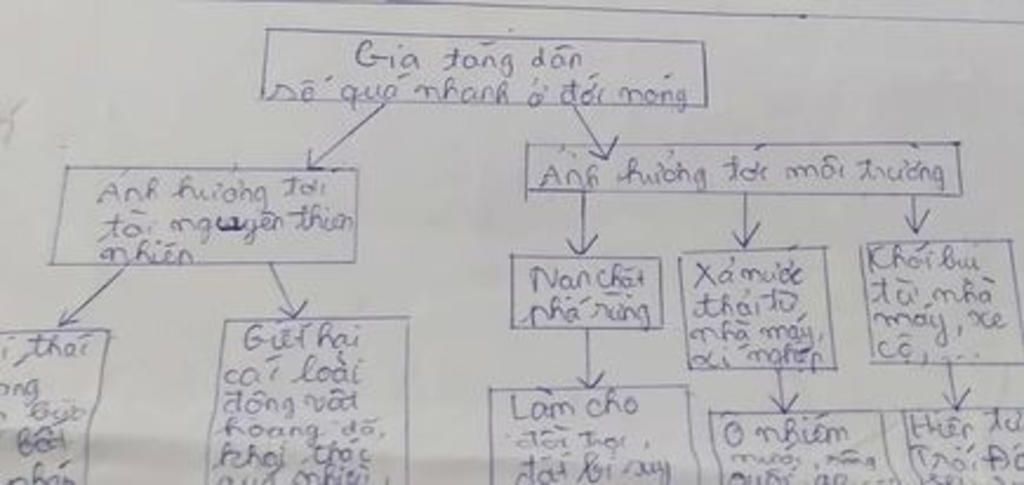 Gia tăng dân
số quá nhanh ở đới nóng
Ảnh hưởng tới
tài nguyên thiên
nhiên
Ảnh hưởng tới môi trường
Nạn chặt
phá rừng
Xả nước
thải từ
nhà máy,
xí nghiệp
Khói bụi
từ nhà
máy, xe
cộ,...
thái
Giết hại
các loài
động vật
hoang dã,
khai thác
quá nhiều,
Làm cho
đồi trọc,
đất bị suy
Ô nhiễm
nước,
Hiện tư
Trái Đấ